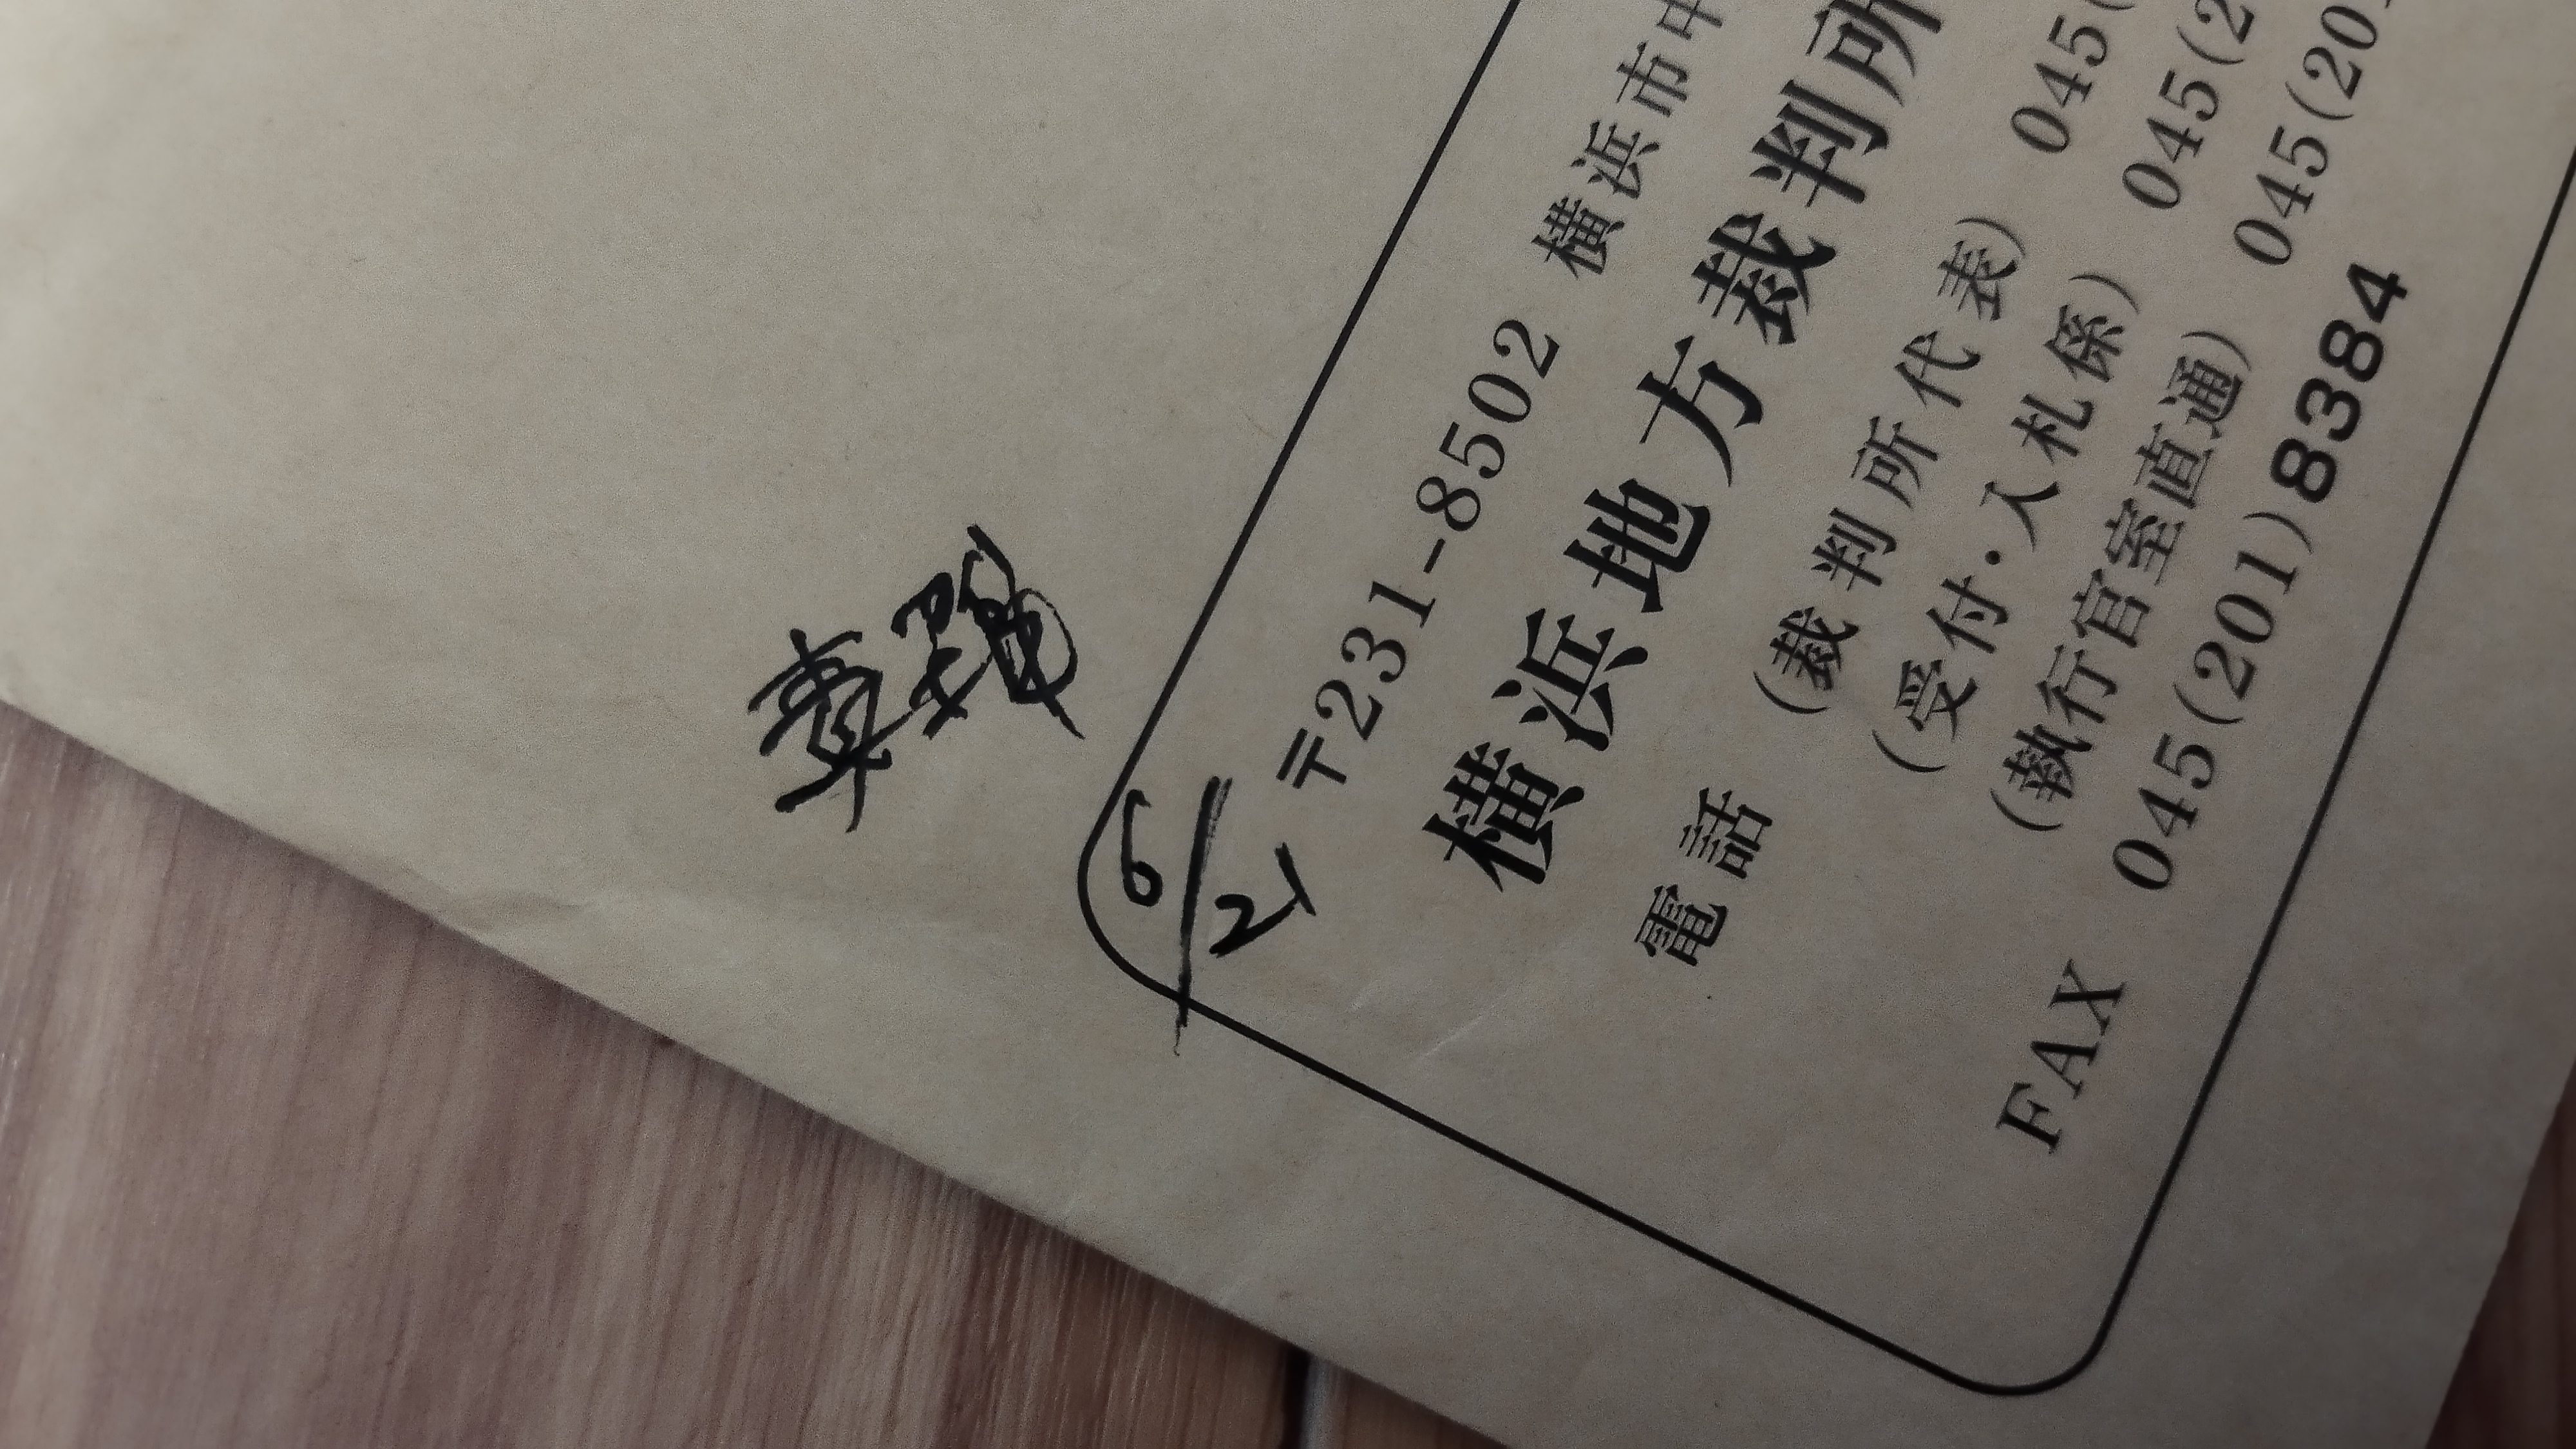 6/21
〒231-8502 横浜市中
横浜地方裁判所
電話 (裁判所代表) 045(
(受付・入札係) 045(2
(執行官室直通) 045(201
FAX 045(201)8384